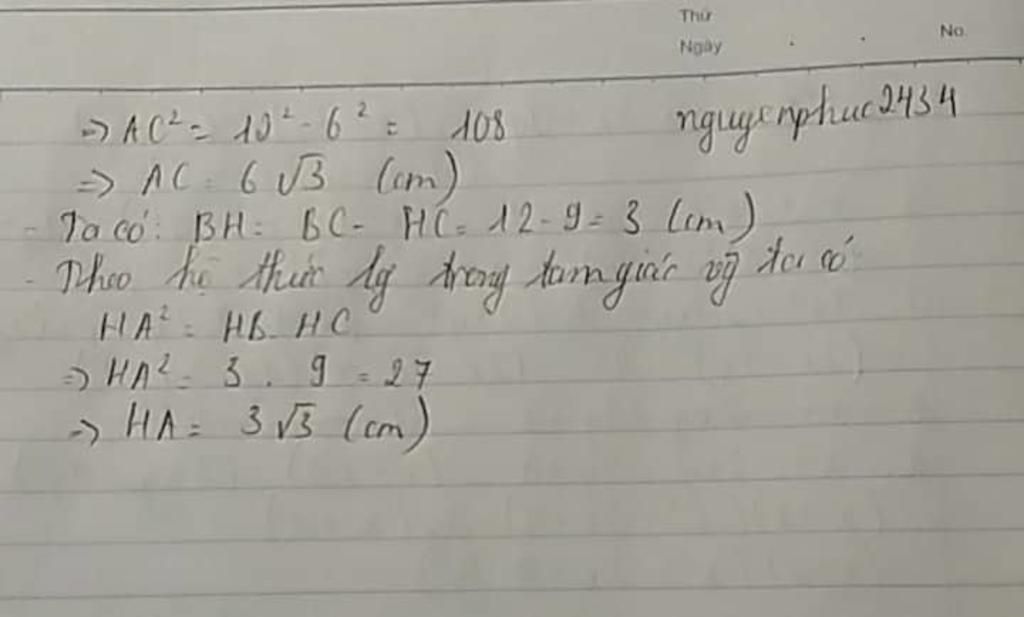 Thứ
Ngày
No.
=> AC² = 10² - 6² = 108
nguyenphuc2434
=> AC = 6√3 (cm)
- Ta có: BH = BC - HC = 12 - 9 = 3 (cm)
- Theo hệ thức lg trong tam giác vg ta có
HA² = HB . HC
=> HA² = 3 . 9 = 27
=> HA = 3√3 (cm)